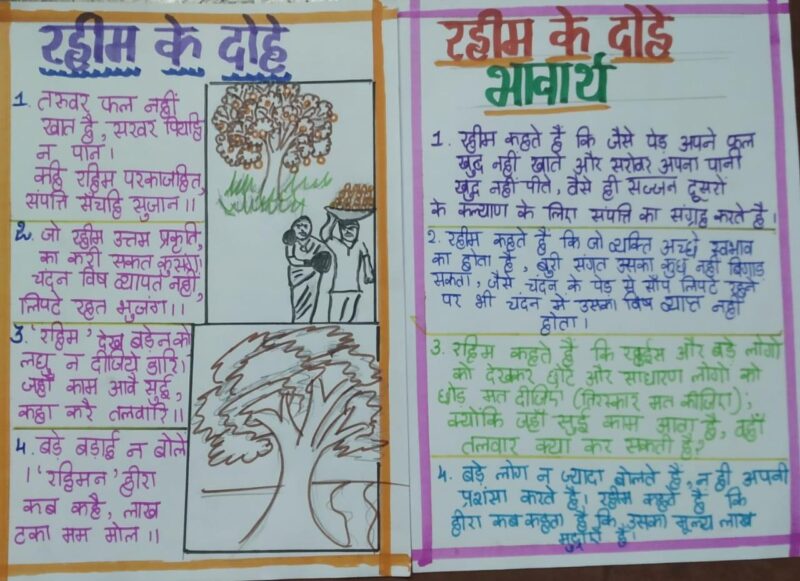 रहीम के दोहे
1. तरुवर फल नहीं
खात है, सरवर पियहि
न पान।
कहि रहिम परकाजहित,
संपत्ति सँचहि सुजान।।
2. जो रहीम उत्तम प्रकृति,
का करी सकत कुसंग।
चंदन विष व्यापत नहीं,
लिपटे रहत भुजंग।।
3. 'रहिम' देख बड़ेन को
लघु न दीजिये डारि।
जहाँ काम आवै सुई,
कहा करै तलवारि।।
4. बड़े बड़ाई न बोले
। 'रहिमन' हीरा
कब कहै, लाख
टका मम मोल।।
रहीम के दोहे
भावार्थ
1. रहीम कहते हैं कि जैसे पेड़ अपने फल
खुद नहीं खाते और सरोवर अपना पानी
खुद नहीं पीते, वैसे ही सज्जन दूसरों
के कल्याण के लिए संपत्ति का संग्रह करते है।
2. रहीम कहते हैं कि जो व्यक्ति अच्छे स्वभाव
का होता है, बुरी संगत उसका कुछ नहीं बिगाड़
सकता, जैसे चंदन के पेड़ से साँप लिपटे रहने
पर भी चंदन में उसका विष व्याप्त नहीं
होता।
3. रहिम कहते हैं कि रहूईस और बड़े लोगो
को देखकर छोटे और साधारण लोगों को
छोड़ मत दीजिए (तिरस्कार मत कीजिए);
क्योंकि जहाँ सुई काम आता है, वहाँ
तलवार क्या कर सकती है?
4. बड़े लोग न ज्यादा बोलते है, न ही अपनी
प्रशंसा करते है। रहीम कहते है कि
हीरा कब कहता है कि उसका मूल्य लाख
मुद्राएँ है।